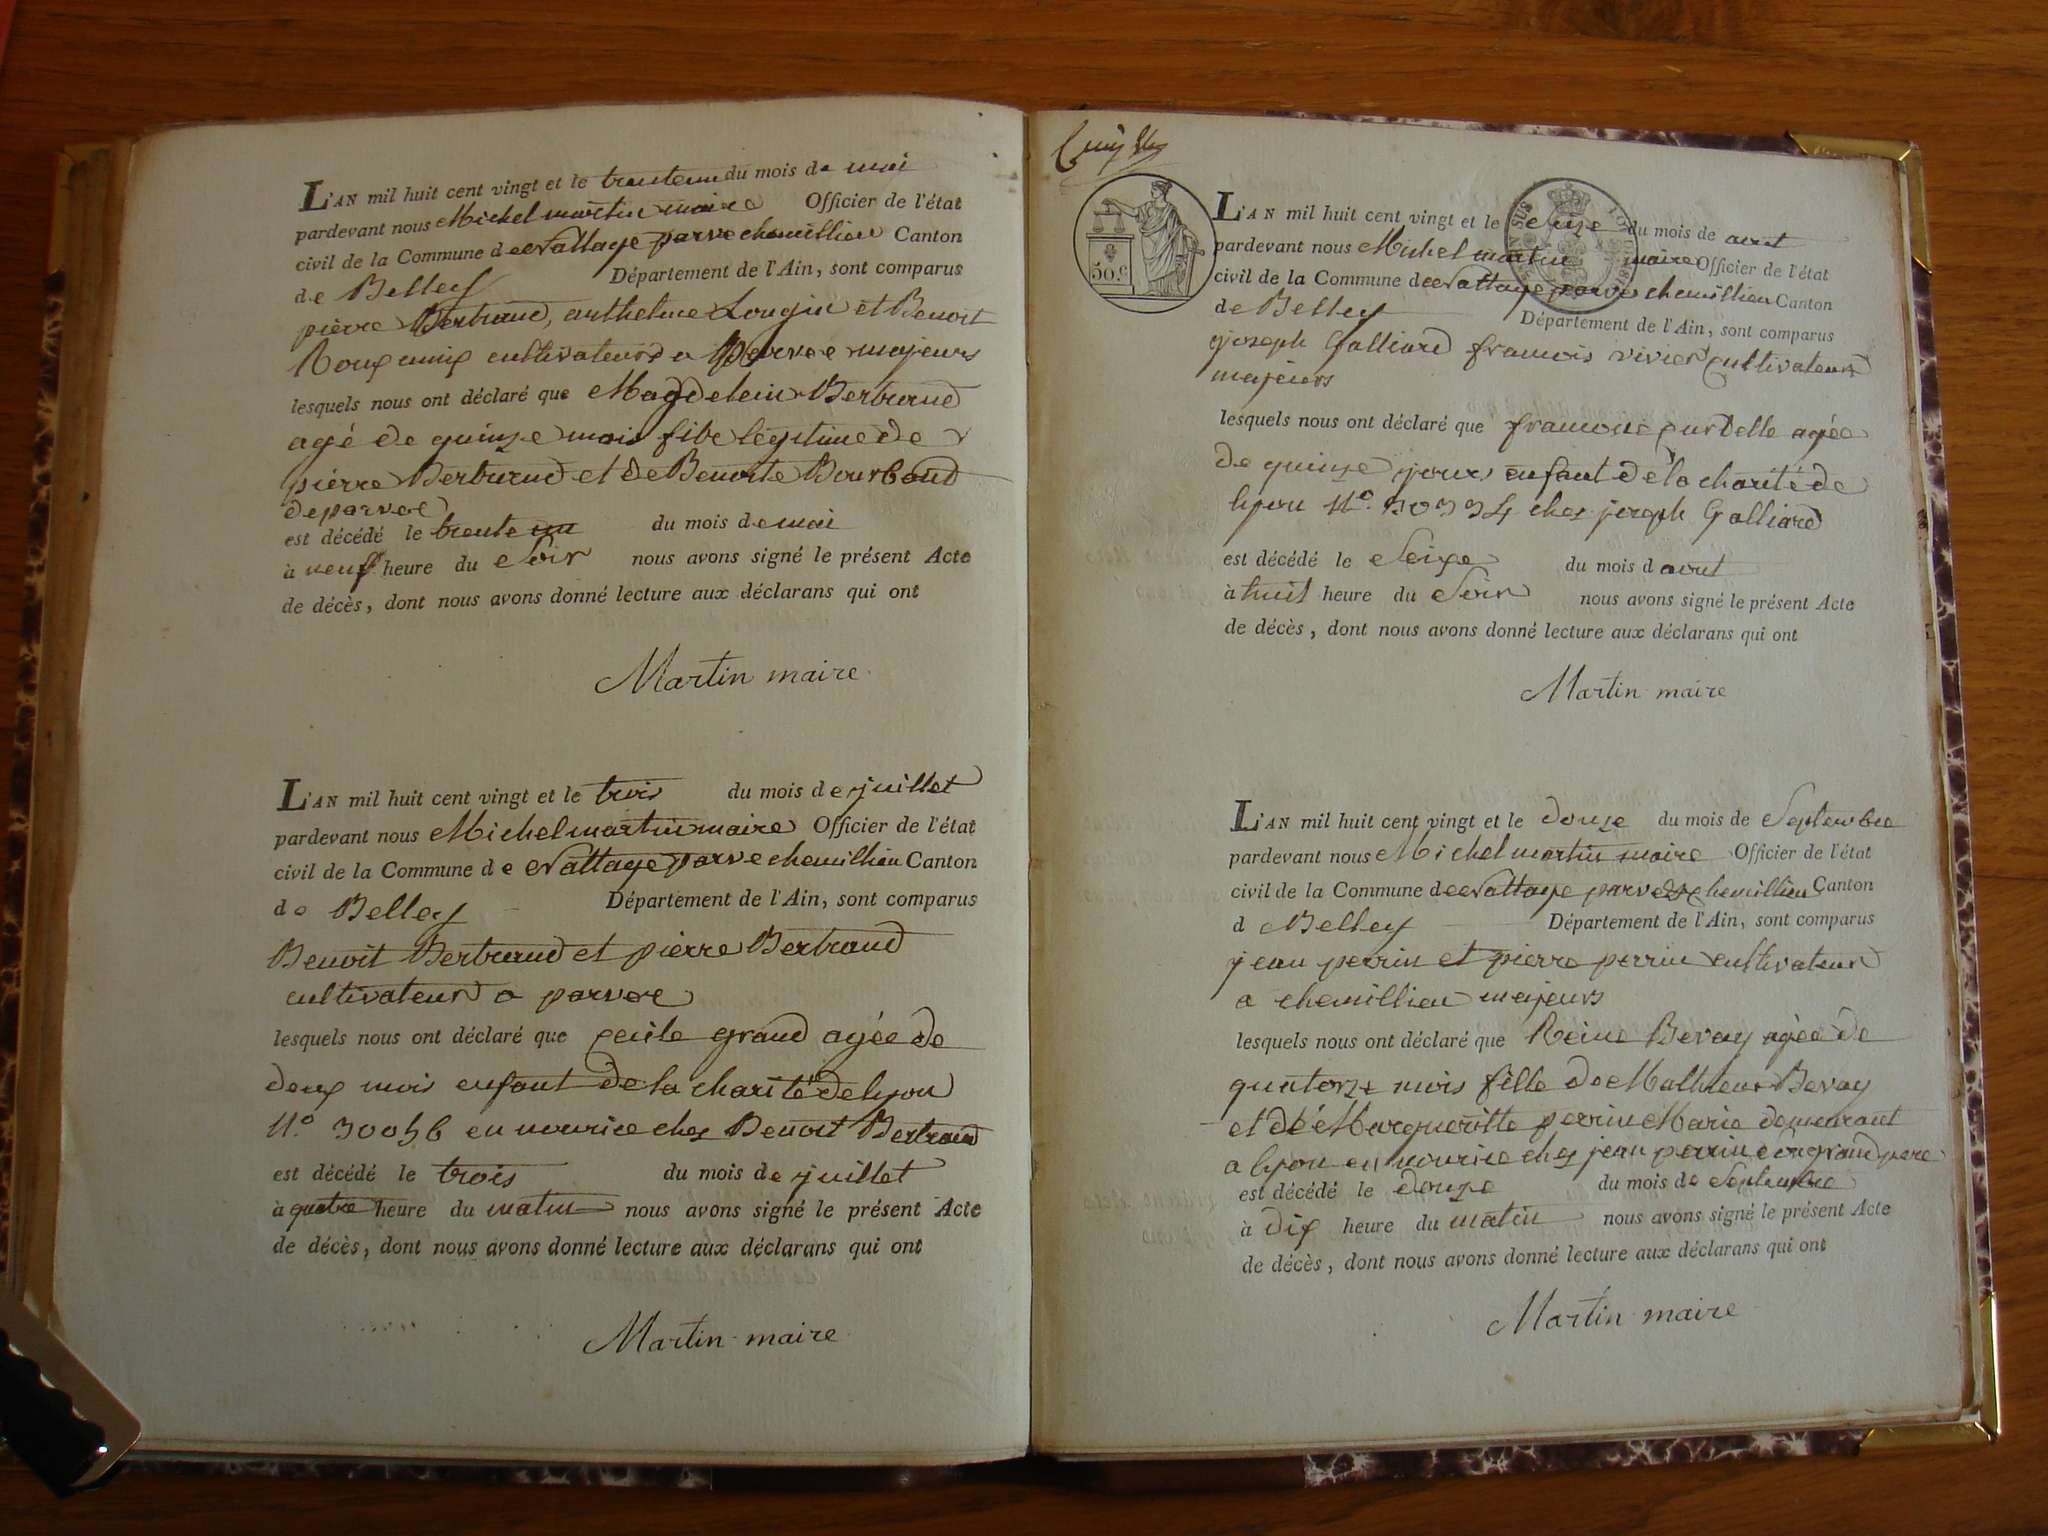 L'AN mil huit cent vingt et le trenteun du mois de mai
pardevant nous Michel martin maire Officier de l'état
civil de la Commune de nattage parve chemillieu Canton
de Belley Département de l'Ain, sont comparus
pierre Bertrand, anthelme Longin et Benoit
cultivateurs a parvee majeurs
lesquels nous ont déclaré que Magdelein Bertrand
agé de quinze mois fille legitime de
pierre Bertrand et de Benoite Bourbond
de parvee
est décédé le trente un du mois de mai
à neuf heure du Soir nous avons signé le présent Acte
de décès, dont nous avons donné lecture aux déclarans qui ont
Martin maire
L'AN mil huit cent vingt et le trois du mois de juillet
pardevant nous Michel martin maire Officier de l'état
civil de la Commune de nattage parve chemillieu Canton
de Belley Département de l'Ain, sont comparus
Benoit Bertrand et pierre Bertrand
cultivateurs a parvee
lesquels nous ont déclaré que cecile grand agée de
deux mois enfant de la charité de lyon
N.o 30056 en nourice ches Benoit Bertrand
est décédé le trois du mois de juillet
à quatre heure du matin nous avons signé le présent Acte
de décès, dont nous avons donné lecture aux déclarans qui ont
Martin maire
50 c
L'AN mil huit cent vingt et le Seize du mois de aout
pardevant nous Michel martin maire Officier de l'état
civil de la Commune de nattage parves chemillieu Canton
de Belley Département de l'Ain, sont comparus
joseph Galliard francois vivier cultivateurs
majeurs
lesquels nous ont déclaré que francoise agée
de quinze jours enfant de la charité de
lyon N.o ches joseph Galliard
est décédé le Seize du mois d aout
à huit heure du Soir nous avons signé le présent Acte
de décès, dont nous avons donné lecture aux déclarans qui ont
Martin maire
L'AN mil huit cent vingt et le douze du mois de Septembre
pardevant nous Michel martin maire Officier de l'état
civil de la Commune de nattage parves chemillieu Canton
d Belley Département de l'Ain, sont comparus
jean perrin et pierre perrin cultivateurs
a chemillieu majeurs
lesquels nous ont déclaré que Reine Bevay agée de
quatorze mois fille de Mathieu Bevay
et de Margueritte perrin Marie demeurant
a lyon en nourice ches jean perrin son grand pere
est décédé le douze du mois de Septembre
à dix heure du matin nous avons signé le présent Acte
de décès, dont nous avons donné lecture aux déclarans qui ont
Martin maire